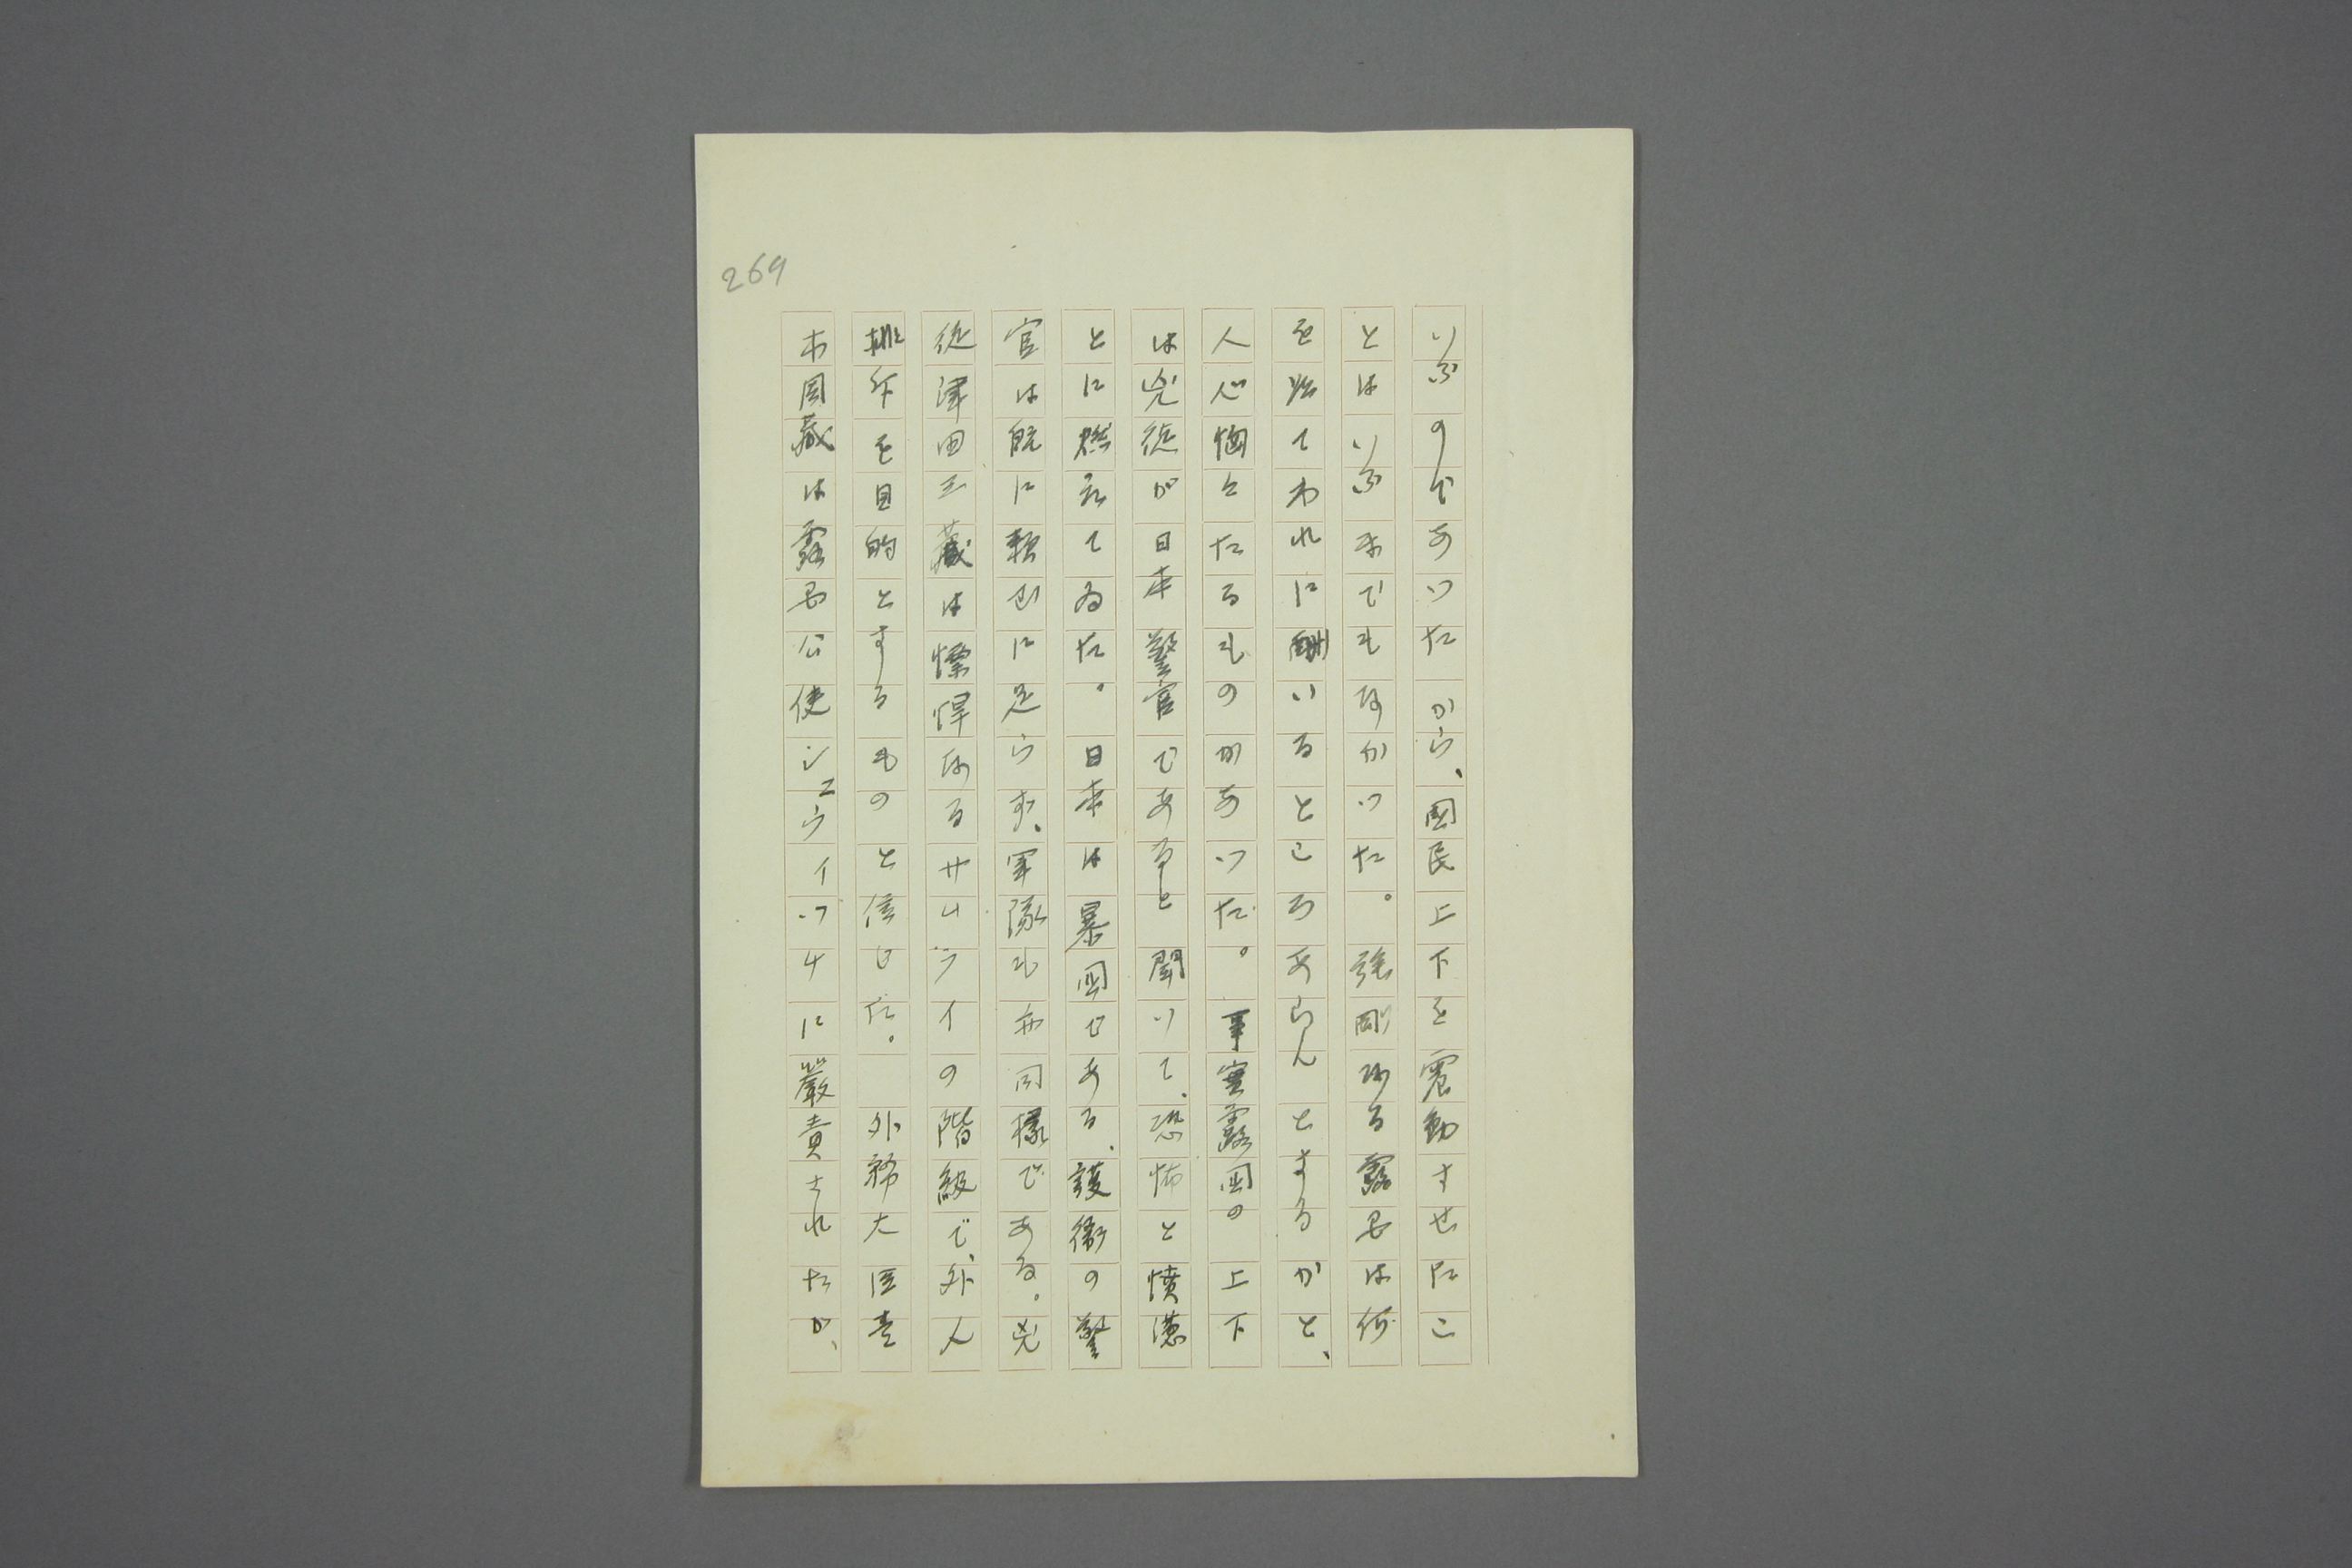 269
いふのであつたから、國民上下を震動させたこ
とはいふまでもなかつた。强剛なる露国は何
を以てわれに酬いるところあらんとするかと、
人心恟々たるものがあつた。事實露国の上下
は兇徒が日本警官であると聞いて、恐怖と憤懣
とに燃えてゐた。日本は暴国である、護衛の警
官は既に頼むに足らず、軍隊も亦同樣である。兇
徒津田三藏は慓悍なるサムライの階級で、外人
排斥を目的とするものと信じた。外務大臣青
木周藏は露国公使シエウイツチに嚴責されたが、